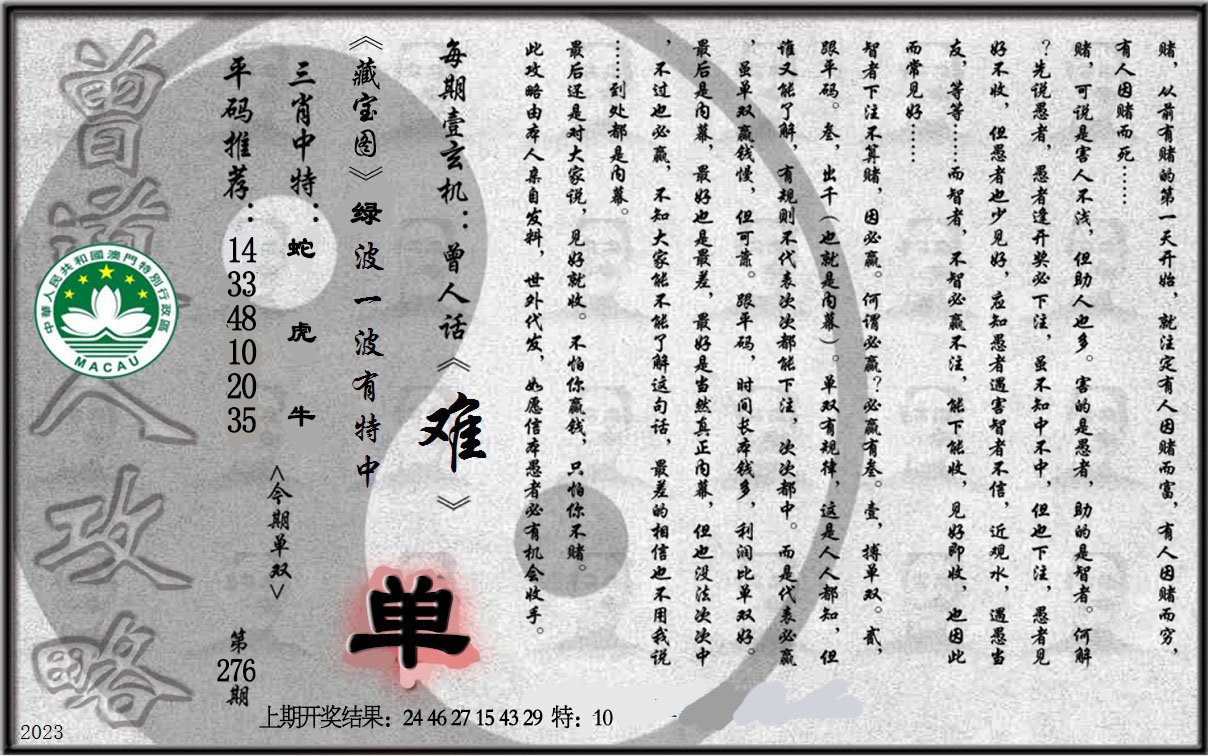 赌，从前有赌的第一天开始，就注定有人因赌而富，有人因赌而穷，
有人因赌而死……
赌，可说是害人不浅，但助人也多。害的是愚者，助的是智者。何解
？先说愚者，愚者逢开奖必下注，虽不知中不中，但也下注，愚者见
好不收，但愚者也少见好，应知愚者遇害智者不信，近观水，遇愚当
友，等等……而智者，不智必赢不注，能下能收，见好即收，也因此
而常见好……
智者下注不算赌，因必赢。何谓必赢？必赢有叁。壹，搏单双。贰，
跟平码。叁，出千（也就是内幕）。单双有规律，这是人人都知，但
谁又能了解，有规则不代表次次都能下注，次次都中。而是代表必赢
，虽单双赢钱慢，但可靠。跟平码，时间长本钱多，利润比单双好。
最后是内幕，最好也是最差，最好是当然真正内幕，但也没法次次中
，不过也必赢，不知大家能不能了解这句话，最差的相信也不用我说
……到处都是内幕。
最后还是对大家说，见好就收。不怕你赢钱，只怕你不赌。
此攻略由本人亲自发料，世外代发，如愿信本愚者必有机会收手。
每期壹玄机：曾人话《难》
《藏宝图》绿波一波有特中
单
三肖中特：蛇 虎 牛
<今期单双>
平码推荐：14 33 48 10 20 35
第276期
曾道人攻略
中華人民共和國澳門特別行政區
MACAU
上期开奖结果：24 46 27 15 43 29 特：10
2023